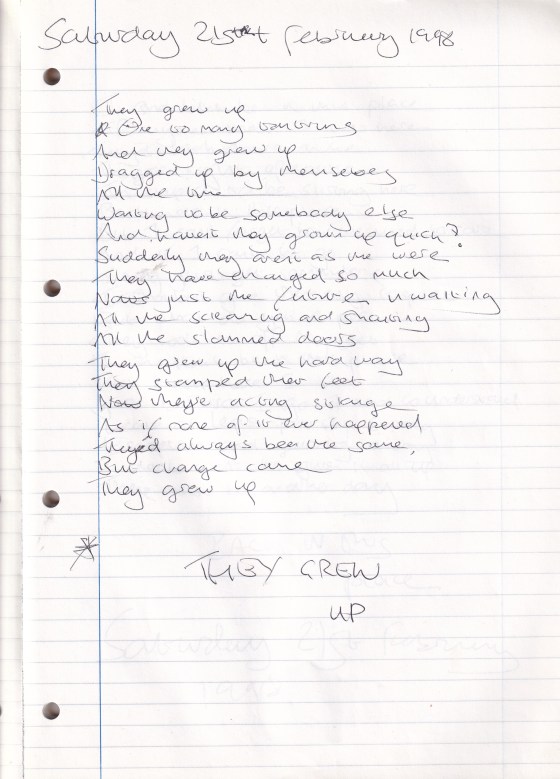 Saturday 21st February 1998
They grew up
One too many
And they grew up
Dragged up by themselves
All the time
Wanting to be somebody else
And haven't they grown up quick?
Suddenly they aren't as we were
They have changed so much
Now just the future n waiting
All the screaming and shouting
All the slammed doors
They grew up the hard way
They stamped their feet
Now they're acting strange
As if none of it ever happened
They'd always been the same,
But change came
They grew up
THEY GREW
UP